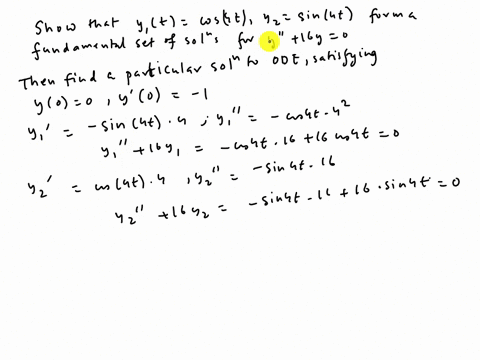 Show that y₁(t) = cos(4t), y₂ = sin(4t) form a
fundamental set of solⁿs for y'' + 16y = 0
Then find a particular solⁿ to ODE, satisfying
y(0) = 0, y'(0) = -1
y₁' = -sin(4t)·4, y₁'' = -cos4t·4²
y₁'' + 16y₁ = -cos4t·16 + 16 cos4t = 0
y₂' = cos(4t)·4, y₂'' = -sin4t·16
y₂'' + 16y₂ = -sin4t·16 + 16·sin4t = 0